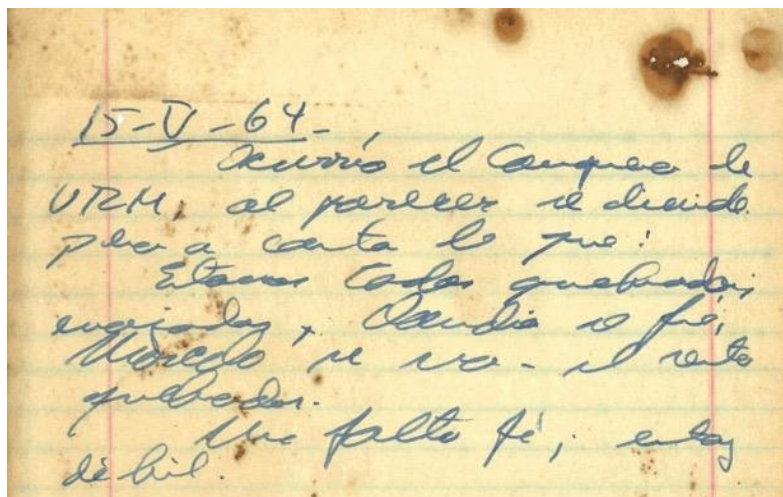 15-V-64-
Ocurrió el Congreso de
VRM, al parecer se divide
pero a costa de que!
Estamos todos quebrados,
enojados, Claudia se fué,
Marcelo se va - el resto
quebrados.
Me falta fé; estoy
débil.